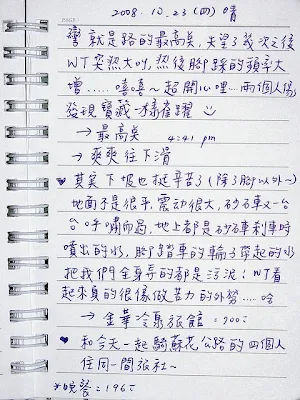 2008.10.23(四)晴
彎就是路的最高矣,失望了幾次之後
WT突然大叫,然後腳踩的頻率大
增.....嘻嘻~超開心哩...兩個人像
發現寶藏一樣雀躍
→最高矣 4:41 pm
→爽爽往下滑
♥其實下坡也挺辛苦了(除了腳以外~)
地面不是很平,震動很大,砂石車又一台
台呼嘯而過,地上都是砂石車剎車時
噴出的水,腳踏車的輪子帶起的水
把我們全身弄的都是污泥!WT看
起來真的很像做苦力的外勞....哈
→金華冷泉旅館=700元
♥和今天一起騎蘇花公路的四個人
住同一間旅社~
*晚餐:196元